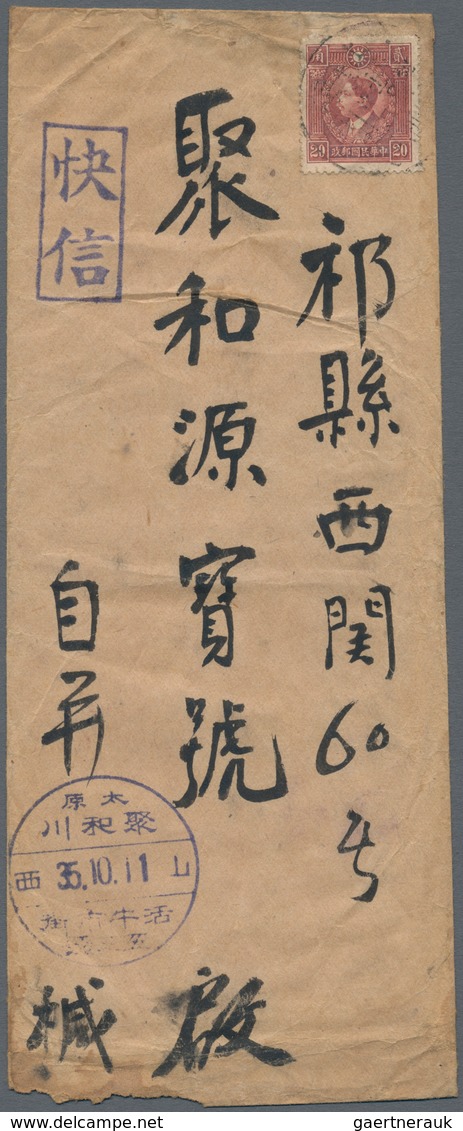 祁縣西関60号
聚和源寶號
啟
自并
椷
快信
貳角
20 20
中華民國郵政
太原
聚和川
山 35.10.11 西
活牛
delcampe.net
gaertnerauk